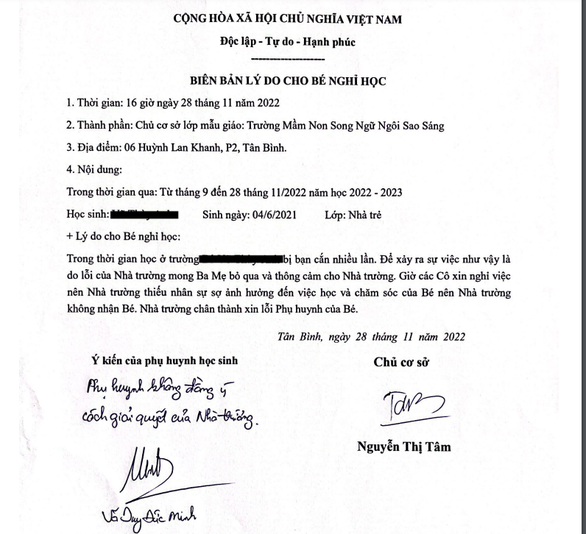 CỘNG HÒA XÃ HỘI CHỦ NGHĨA VIỆT NAM
Độc lập - Tự do - Hạnh phúc
BIÊN BẢN LÝ DO CHO BÉ NGHỈ HỌC
1. Thời gian: 16 giờ ngày 28 tháng 11 năm 2022
2. Thành phần: Chủ cơ sở lớp mẫu giáo: Trường Mầm Non Song Ngữ Ngôi Sao Sáng
3. Địa điểm: 06 Huỳnh Lan Khanh, P2, Tân Bình.
4. Nội dung:
Trong thời gian qua: Từ tháng 9 đến 28 tháng 11/2022 năm học 2022 - 2023
Học sinh: Sinh ngày: 04/6/2021 Lớp: Nhà trẻ
+ Lý do cho Bé nghỉ học:
Trong thời gian học ở trường bị bạn cắn nhiều lần. Để xảy ra sự việc như vậy là
do lỗi của Nhà trường mong Ba Mẹ bỏ qua và thông cảm cho Nhà trường. Giờ các Cô xin nghỉ việc
nên Nhà trường thiếu nhân sự sợ ảnh hưởng đến việc học và chăm sóc của Bé nên Nhà trường
không nhận Bé. Nhà trường chân thành xin lỗi Phụ huynh của Bé.
Tân Bình, ngày 28 tháng 11 năm 2022
Ý kiến của phụ huynh học sinh
Chủ cơ sở
Phụ huynh không đồng ý
cách giải quyết của Nhà trường.
Nguyễn Thị Tâm
Võ Duy Đức Minh